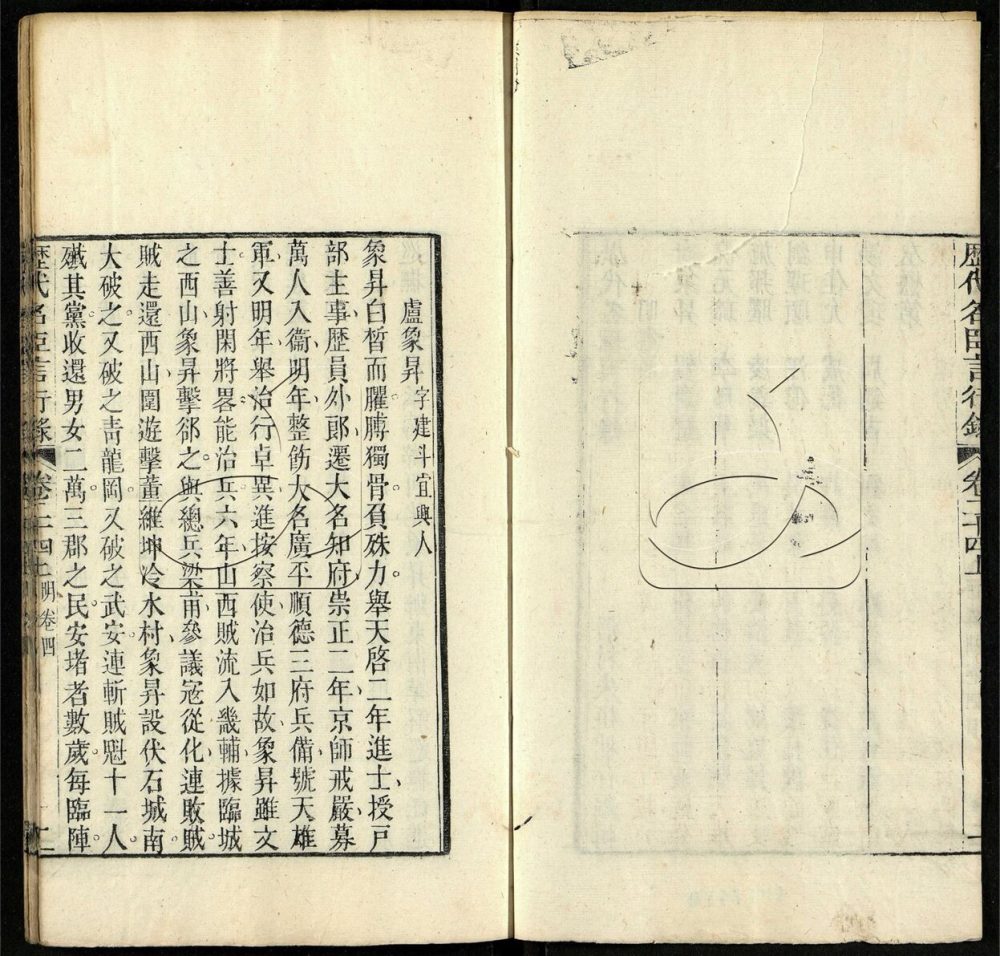 歷代名臣言行錄 卷二十四上 一
盧象昇字建斗宜興人
象昇白皙而臞膊獨骨負殊力。舉天啓二年進士、授戸
部主事歴員外郎遷大名知府崇正二年京師戒嚴、募
萬人入衞、明年、整飭大名廣平順德三府兵備、號天雄
軍、又明年舉治行卓異、進按察使、治兵如故、象昇雖文
士、善射、閑將畧、能治兵、六年山西賊流入畿輔、據臨城
之西山、象昇擊郤之。與總兵梁甫、參議寇從化、連敗賊、
賊走還西山、圍遊擊董維坤冷水村、象昇設伏石城南、
大破之。又破之靑龍岡。又破之武安。連斬賊魁十一人。
殱其黨。收還男女二萬。三郡之民、安堵者數歲。每臨陣。
歴代名臣言行錄 卷二十四上 明卷四 二